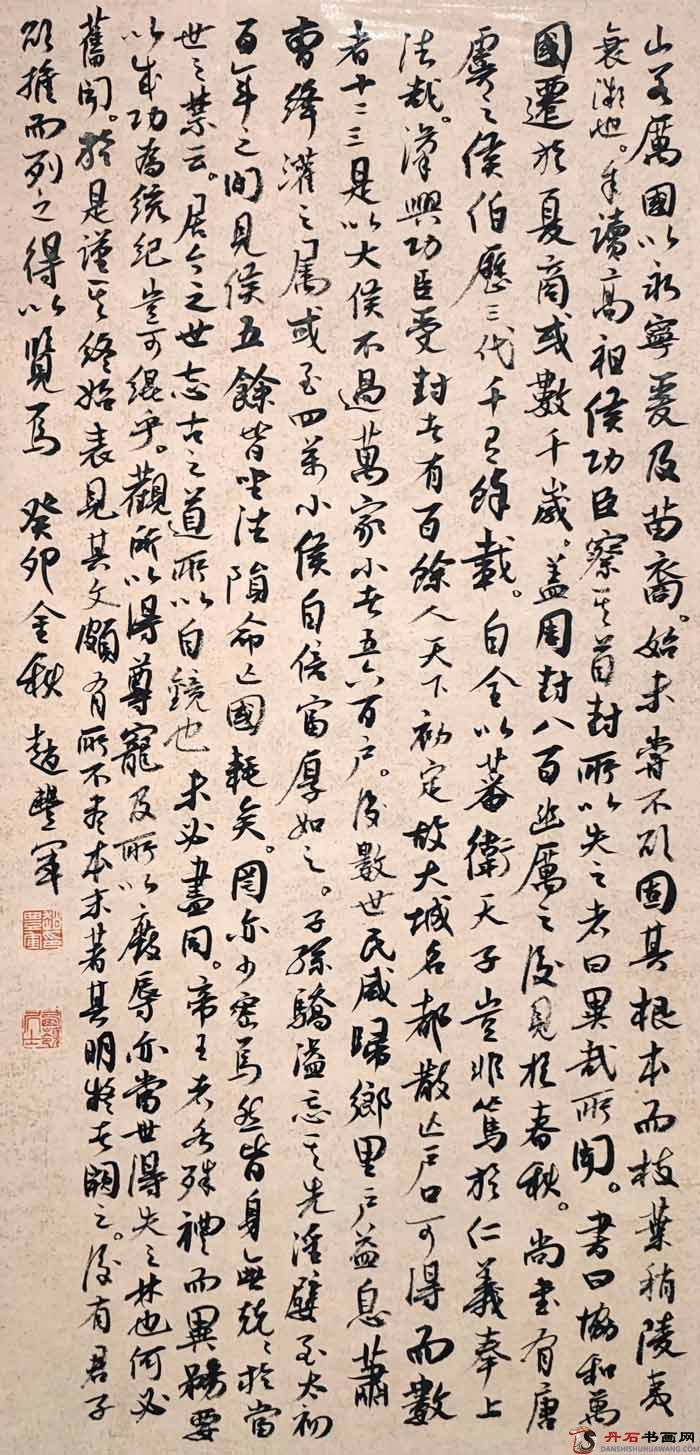 山若厲國以永寧爰及苗裔。始未嘗不欲固其根本而枝葉稍陵夷
衰微也。余讀高祖侯功臣察其首封所以失之者曰異哉所聞。書曰協和萬
國遷於夏商或數千歲。蓋周封八百幽厲之後見於春秋。尚書有唐
虞之侯伯歷三代千有餘載。自全以蕃衛天子豈非篤於仁義奉上
法哉。漢興功臣受封者有百餘人天下初定故大城名都散亡戶口可得而數
者十二三是以大侯不過萬家小者五六百戶。後數世民咸歸鄉里戶益息蕭
曹絳灌之屬或至四萬小侯自倍富厚如之。子孫驕溢忘其先淫嬖至太初
百年之間見侯五餘皆坐法隕命亡國耗矣。罔亦少密焉然皆身無兢兢於當
世之禁云。居今之世志古之道所以自鏡也未必盡同。帝王者各殊禮而異務要
以成功為統紀豈可緄乎。觀所以得尊寵及所以廢辱亦當世得失之林也何必
舊聞。於是謹其終始表見其文頗有所不盡本末著其明疑者闕之。後有君子
欲推而列之得以覽焉 癸卯金秋 趙豐軍
丹石书画网
DANSHISHUHUAWANG.COM